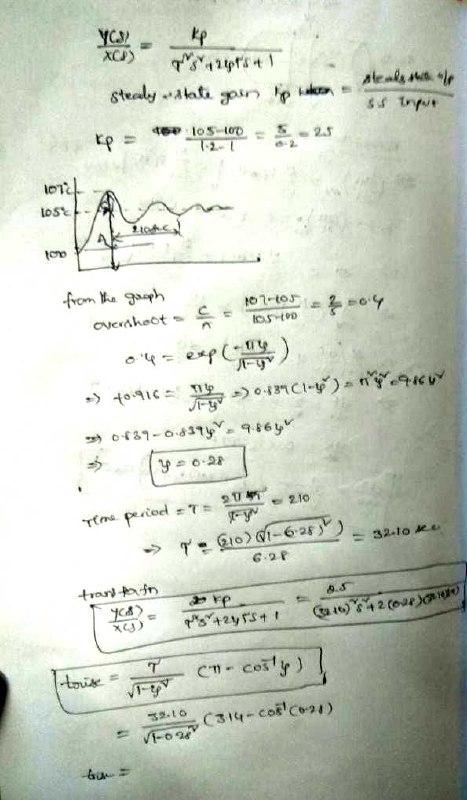 Y(S)/X(S) = kp / τ²s²+2ψτs+1
steady-state gain kp = steady state o/p / s.s Input
kp = 105-100 / 1.2-1 = 5/0.2 = 25
107°C
105°C
A
210sec
100
from the graph
overshoot = C/A = 107-105 / 105-100 = 2/5 = 0.4
0.4 = exp(-πψ/√1-ψ²)
=> +0.916 = πψ/√1-ψ² => 0.839(1-ψ²) = π²ψ² = 9.86ψ²
=> 0.839-0.839ψ² = 9.86ψ²
=> ψ = 0.28
Time period = T = 2πτ/√1-ψ² = 210
=> τ = (210)(√1-0.28²) / 6.28 = 32.10 sec
trans fn
Y(S)/X(S) = kp / τ²s²+2ψτs+1 = 25 / (32.10)²s²+2(0.28)
trise = τ/√1-ψ² (π - cos⁻¹ψ)
= 32.10/√1-0.28² (3.14-cos⁻¹(0.28))
=